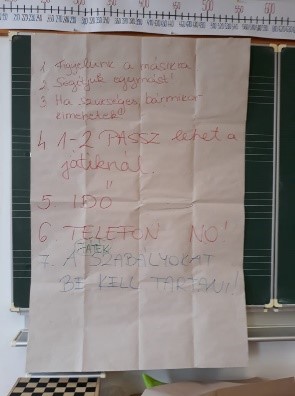 1 Figyelünk a másikra
2 Segítjük egymást!
3 Ha szükséges bármikor
kimehetek
4 1-2 PASSZ lehet a
játéknál.
5. IDŐ
6. TELEFON NO!
JÁTÉK
7. A SZABÁLYOKAT
BE KELL TARTANI!!